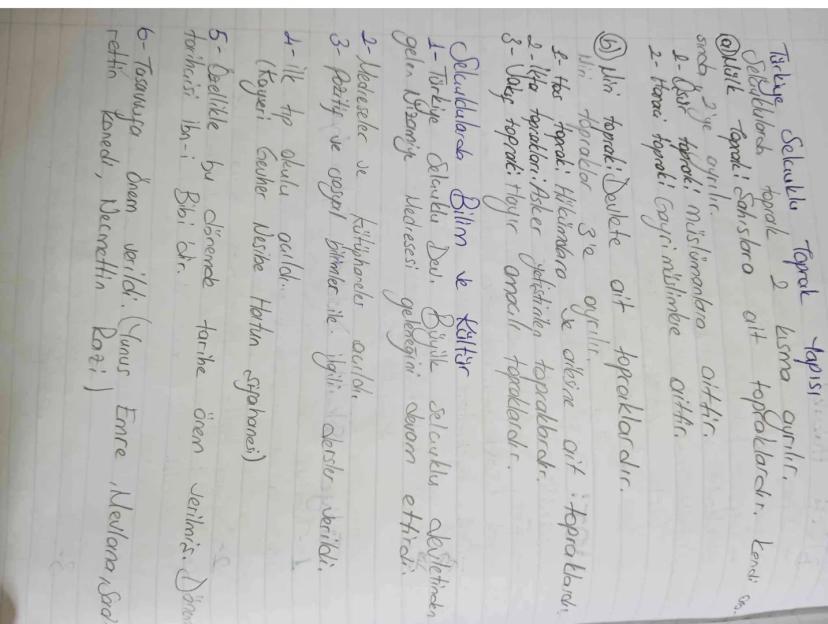 Türkiye Selçuklu Toprak Yapısı
Selçuklularda toprak 2 kısma ayrılır.
(a) Mülk Toprak: Şahıslara ait topraklardır. Kendi ara
sında 2'ye ayrılır.
1- Öşri toprak: müslümanlara aittir.
2- Haraci toprak: Gayri müslimlere aittir.
(b) Miri toprak: Devlete ait topraklardır.
Miri topraklar 3'e ayrılır.
1- Has toprak: Hükümdara ve ailesine ait topraklardır.
2- İkta toprakları: Asker yetiştirilen topraklardır.
3- Vakıf toprak: Hayır amaçlı topraklardır.
Selçuklularda Bilim ve Kültür
1- Türkiye Selçuklu Dev. Büyük Selçuklu devletinden
gelen Nizamiye Medresesi geleneğini devam ettirdi.
2- Medreseler ve kütüphaneler açıldı.
3- Pozitif ve sosyal bilimler ile ilgili dersler verildi.
4- İlk tıp okulu açıldı.
(Kayseri Gevher Nesibe Hatun Şifahanesi)
5- Özellikle bu dönemde tarihe önem verilmiş. Dönem
tarihçisi İbn-i Bibi'dir.
6- Tasavvufa önem verildi. (Yunus Emre, Mevlana, Sad
rettin Konedi, Necmettin Razi)